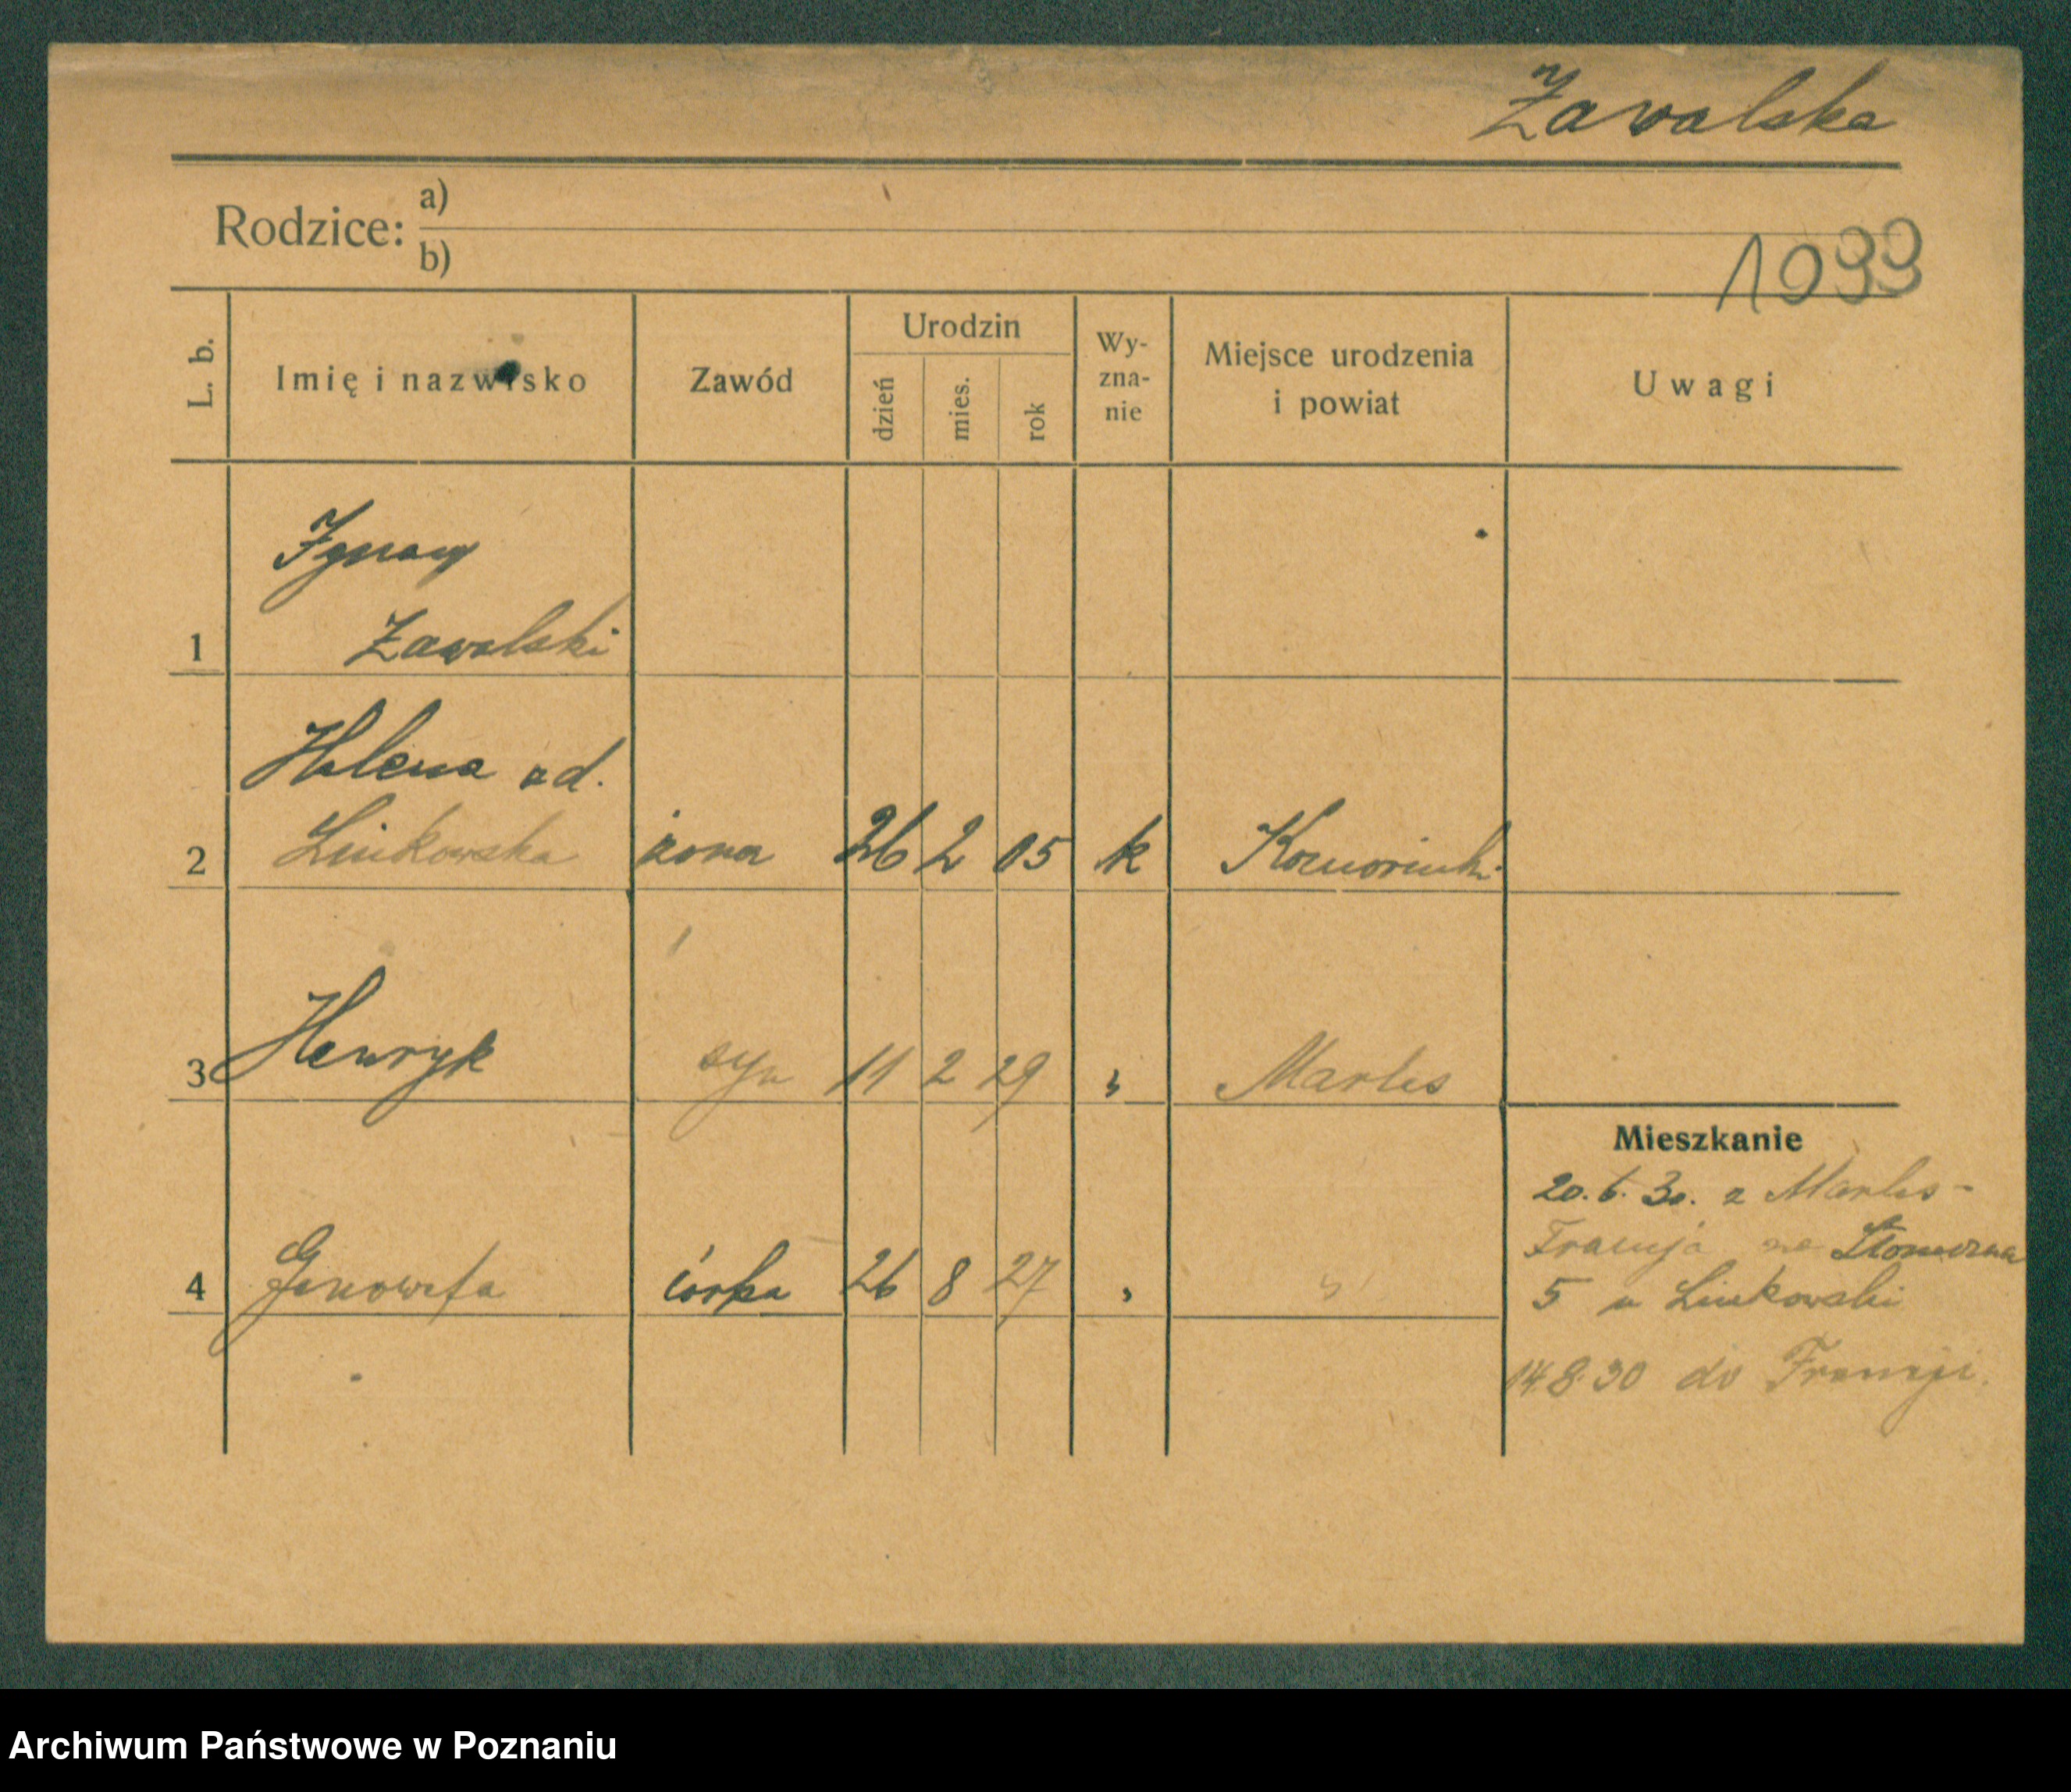 Zawalska
Rodzice: a)
b)
1099
L. b.
Imię i nazwisko
Zawód
Urodzin
dzień
mies.
rok
Wy-
zna-
nie
Miejsce urodzenia
i powiat
Uwagi
Ignacy
1 Zawalski
Helena
2 Linkowska żona 26 2 05 k
3 Henryk syn 11 2 29 " Marles
4 Genowefa córka 26 8 27 " "
Mieszkanie
20.6.30. z Marles-
Francja na
5 u Linkowski
14.8.30 do Francji.
Archiwum Państwowe w Poznaniu